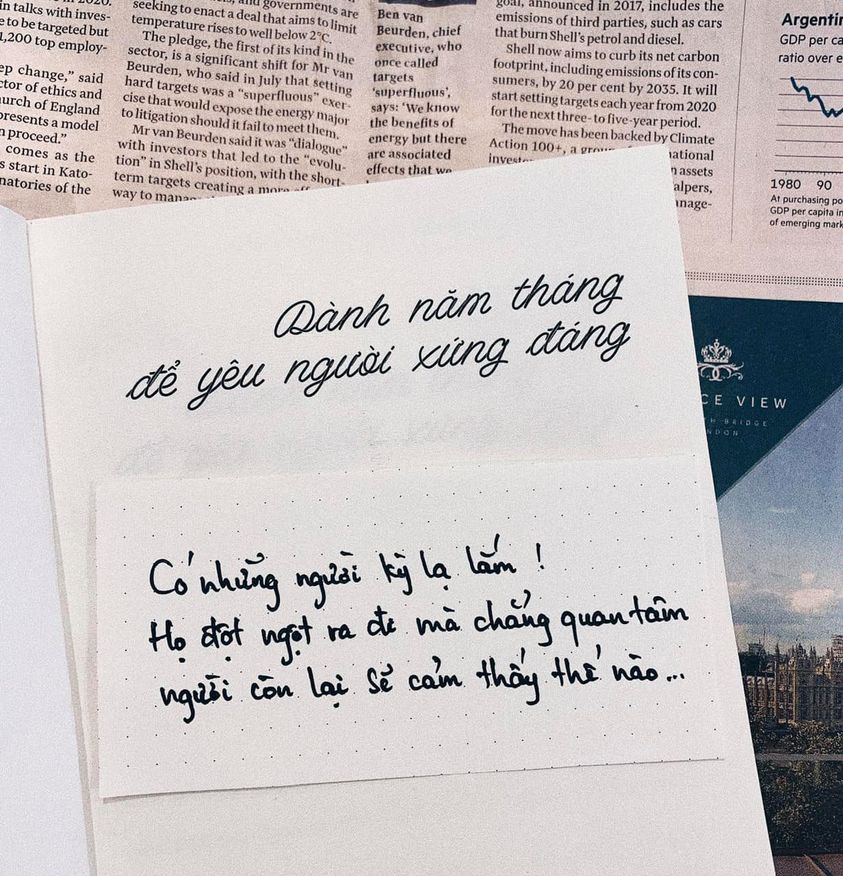 in talks with inves-
e to be targeted but
1,200 top employ-
ep change," said
ctor of ethics and
urch of England
presents a model
n proceed."
comes as the
s start in Kato-
natories of the
seeking to enact a deal that aims to limit
temperature rises to well below 2°C.
The pledge, the first of its kind in the
sector, is a significant shift for Mr van
Beurden, who said in July that setting
hard targets was a "superfluous" exer-
cise that would expose the energy major
to litigation should it fail to meet them.
Mr van Beurden said it was "dialogue"
with investors that led to the "evolu-
tion" in Shell's position, with the short-
term targets creating a more
way to
Ben van
Beurden, chief
executive, who
once called
targets
'superfluous',
says: 'We know
the benefits of
energy but there
are associated
effects that we
goal, announced in 2017, includes the
emissions of third parties, such as cars
that burn Shell's petrol and diesel.
Shell now aims to curb its net carbon
footprint, including emissions of its con-
sumers, by 20 per cent by 2035. It will
start setting targets each year from 2020
for the next three- to five-year period.
The move has been backed by Climate
Action 100+, a
assets
Argentin
GDP per ca
ratio over e
1980 90
At purchasing po
GDP per capita in
of emerging mark
Dành năm tháng
để yêu người xứng đáng
Có những người kỳ lạ lắm !
Họ đột ngột ra đi mà chẳng quan tâm
người còn lại sẽ cảm thấy thế nào...
CE VIEW